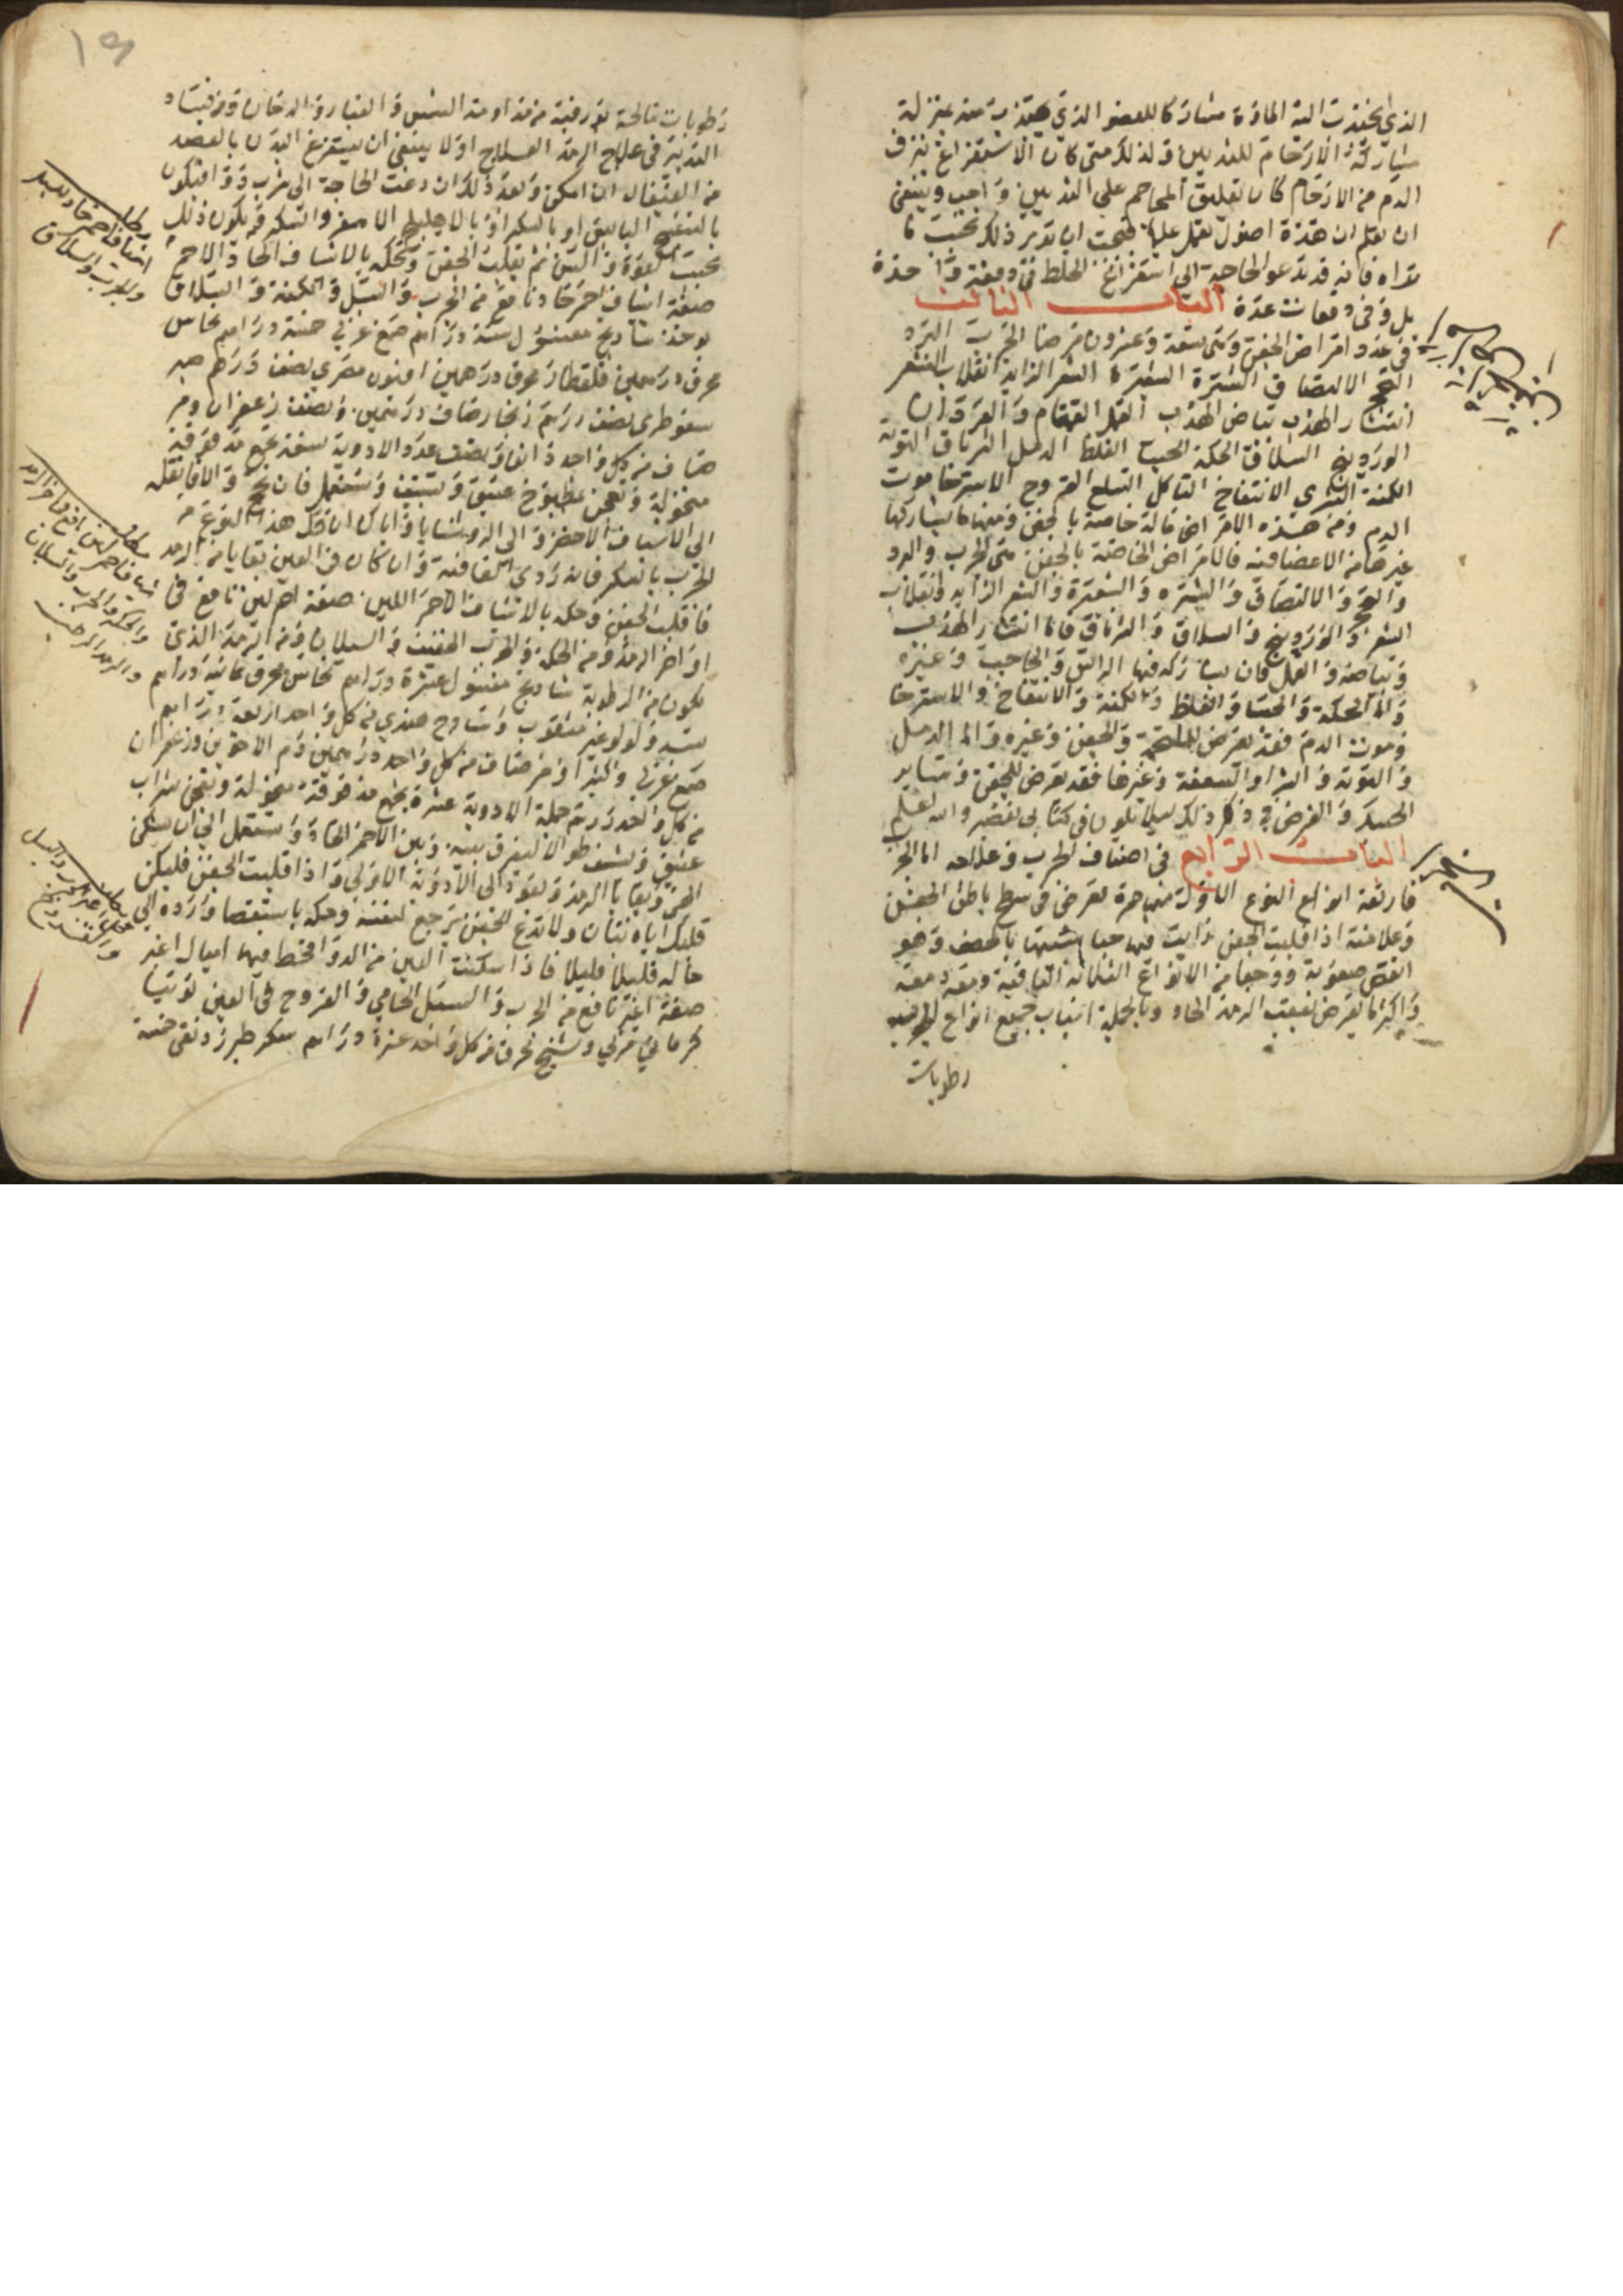 الذي انحدرت اليه المادة مشاركا للعضو الذي منه بمنزلة
مشاركة الارحام للثديين ولذلك متى كان الاستفراغ نزف
الدم من الارحام كان تعليق المحاجم على الثديين واجب وينبغي
ان تعلم ان هذه اصول تعمل عليها فيجب ان تدبر ذلك بحسب ما
تراه فانه قد تدعو الحاجة الى استفراغ الخلط في دفعة واحدة
بل وفي دفعات عدة الباب الثالث
في عدد امراض الجفن وهي تسعة وعشرون مرضا الجرب البرد
التحجر الالتصاق الشترة الشعيرة الشعر الزايد انقلاب الشعر
انتشار الهدب بياض الهدب القمل القمقام والقردان
الوردينج السلاق الحكة الجسا الغلظ الدمل الشرناق التوتة
الكمنة الشري الانتفاخ التاكل السلع القروح الاسترخا موت
الدم ومن هذه الامراض ما له خاصة بالجفن ومنها ما يشاركها
غيرها من الاعضا فيه فالامراض الخاصة بالجفن هي الجرب والبرد
والتحجر والالتصاق والشتره والشعيرة والشعر الزايد وانقلاب
الشعر والوردينج والسلاق والشرناق فاما انتشار الهدب
وبياضه والقمل فان يشاركه فيها الراس والحاجب وغيره
واما الحكة والجسا والغلظ والكمنة والانتفاخ والاسترخا
وموت الدم فقد تعرض للملتحمة والجفن وغيره واما الدمل
والتوتة والشرا والسعفة وغيرها فقد تعرض للجفن وساير
الجسد والغرض في ذكر ذلك ليلا يكون في كتابي تقصير والله اعلم
الباب الرابع في اصناف الجرب وعلاجه اما الجرب
فاربعة انواع النوع الاول منها حمرة تعرض في سطح باطن الجفن
وعلامته اذا قلبت الجفن رايت فيها حبا شبيها بالحصف وهو
انقص صعوبة ووجعا من الانواع الثلاثة الباقية ومعه دمعة
واكثر ما يعرض بعقب الرمد الحاد وبالجملة اسباب جميع انواع الجرب
رطوبات
رطوبات مالحة بورقية من مداومة الشمس والغبار والدخان ومن فساد
التدبير في علاج الرمد العلاج اولا ينبغي ان يستفرغ البدن بالفصد
من القيفال ان امكن وبعد ذلك ان دعت الحاجة الى شرب دوا فيكون
او بالسكر او بالاهليلج الاصفر والسكر ويكون ذلك
بحسب القوة والسن ثم يقلب الجفن ويحكه بالاشياف الحاد الاحمر
صفة اشياف احمر حاد نافع من الجرب والسبل والكمنة والسلاق
يوخذ شادنج مغسول ستة دراهم صمغ عربي خمسة دراهم نحاس
محرق درهمين قلقطار محرق درهمين افيون مصري نصف درهم صبر
سقوطري نصف درهم زنجار صاف درهمين ونصف زعفران ومر
صاف من كل واحد ونصف عدد الادوية تسعة تجمع مدقوقة
منخولة وتعجن بمطبوخ عتيق وتشيف وتستعمل فان نجح والا فانقله
الى الاشياف الاخضر والى الروشنايا واياك ان تحك هذا النوع من
الجرب بالسكر فانه ردي العافية وان كان في العين بقايا من الرمد
فاقلب الجفن وحكه بالاشياف الاحمر اللين صفة احمر لين نافع في
اواخر الرمد ومن الحكة والجرب الخفيف والسيلان ومن الرمد الذي
يكون من الرطوبة شادنج مغسول عشرة دراهم نحاس محرق ثمانية دراهم
بسد ولولو غير مثقوب وشادنج هندي من كل واحد اربعة دراهم
صمغ عربي وكثيرا ومر صاف من كل واحد درهمين دم الاخوين وزعفران
من كل واحد درهم جملة الادوية عشرة تجمع مدقوقة منخولة وتعجن بشراب
عتيق وتشيف طوالا ليفرق بينه وبين الاحمر الحاد وتستعمل الى ان يسكن
الحمى وبقايا الرمد وتعود الى الادوية الاولى واذا قلبت الجفن فليكن
قلبك اياه بتان ولا تدع الجفن يرجع لنفسه وحكه باستقصا واردده الى
حاله قليلا قليلا فاذا سكنت العين من الدوا فخط فيها اميال اغبر
صفة اغبر نافع من الجرب والسبل الحامي والقروح في العين توتيا
كرماني مربي وشيح محرق من كل واحد عشرة دراهم سكر طبرزد نقي خمسة
اشياف احمر حاد للسبل
والجرب والسلاق
اشياف احمر لين نافع من اواخر الرمد
والحكة والجرب والسيلان